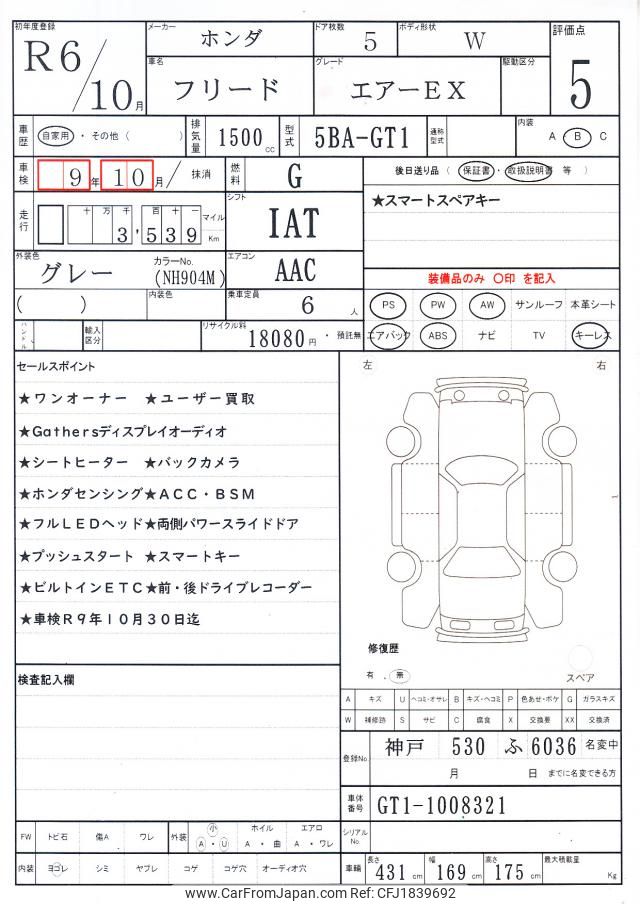 初年度登録 メーカー ドア枚数 ボディ形状 評価点
R6/10月 ホンダ 5 W 5
車名 グレード 駆動区分
フリード エアーEX
車歴 自家用 ・ その他 ( ) 排気量 1500 cc 型式 5BA-GT1 通称型式 内装 A B C
車検 9年 10月 / 抹消 燃料 G 後日送り品 ( 保証書 ・ 取扱説明書 等 )
★スマートスペアキー
走行 十 万 千 百 十 一 マイル シフト
3,539 Km IAT
外装色 カラーNo. エアコン
グレー (NH904M) AAC 装備品のみ 〇印 を記入
( ) 内装色 乗車定員 6 人 PS PW AW サンルーフ 本革シート
ハンドル 輸入区分 リサイクル料 18080円 ・ 預託無 エアバック ABS ナビ TV キーレス
セールスポイント 左 右
★ワンオーナー ★ユーザー買取
★Gathersディスプレイオーディオ
★シートヒーター ★バックカメラ
★ホンダセンシング★ACC・BSM
★フルLEDヘッド★両側パワースライドドア
★プッシュスタート ★スマートキー
★ビルトインETC★前・後ドライブレコーダー
★車検R9年10月30日迄
修復歴
有 . 無 スペア
検査記入欄
A キズ U ヘコミ・オサレ B キズ・ヘコミ P 色あせ・ボケ G ガラスキズ
W 補修跡 S サビ C 腐食 X 交換要 XX 交換済
登録No. 神戸 530 ふ 6036 名変中
月 日 までに名変できる方
車体番号 GT1-1008321
FW トビ石 傷A ワレ 外装 小 ホイル エアロ シリアルNo.
A ・ U A ・ 曲 A ・ ワレ
内装 ヨゴレ シミ ヤブレ コゲ コゲ穴 オーディオ穴 車輛 長さ 431 cm 幅 169 cm 高さ 175 cm 最大積載量 Kg
www.CarFromJapan.com Ref: CFJ1839692